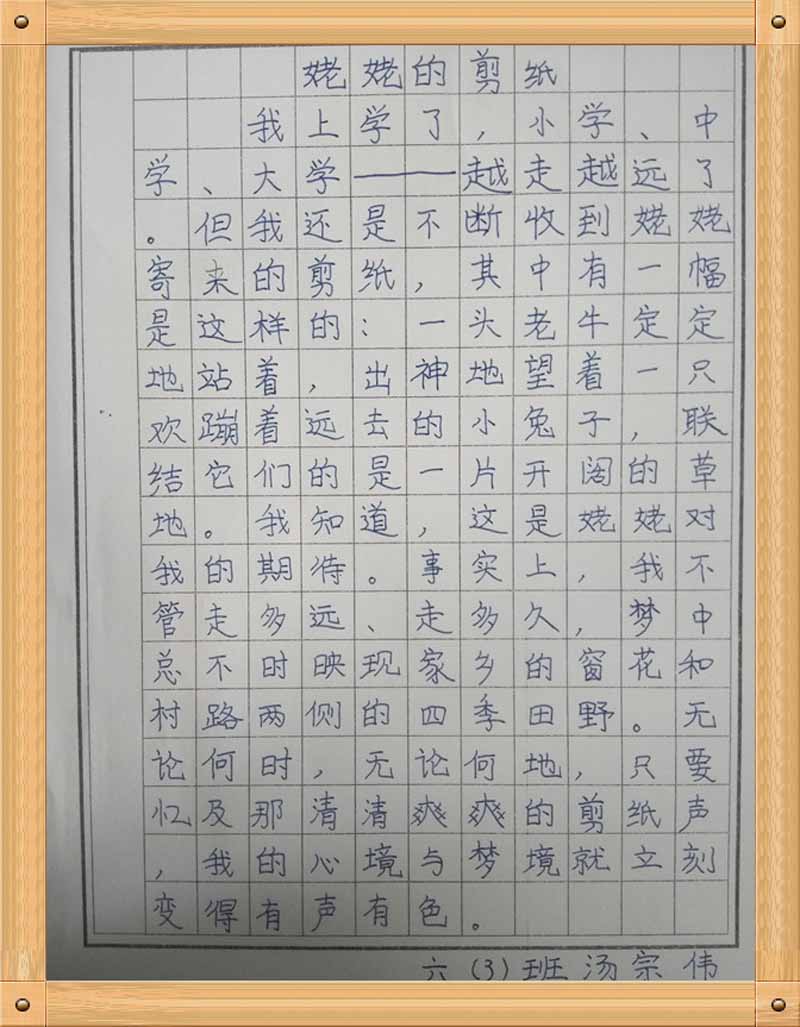 姥姥的剪纸
我上学了，小学、中
学、大学——越走越远了
。但我还是不断收到姥姥
寄来的剪纸，其中有一幅
是这样的：一头老牛定定
地站着，出神地望着一只
欢蹦着远去的小兔子，联
结它们的是一片开阔的草
地。我知道，这是姥姥对
我的期待。事实上，我不
管走多远、走多久，梦中
总不时映现家乡的窗花和
村路两侧的四季田野。无
论何时，无论何地，只要
忆及那清清爽爽的剪纸声
，我的心境与梦境就立刻
变得有声有色。
六（3）班汤宗伟